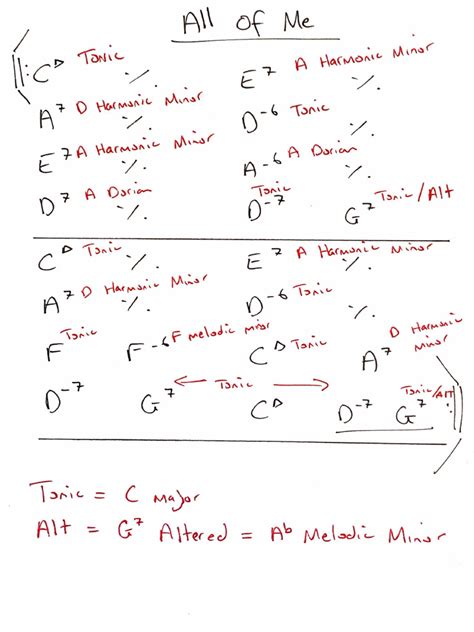 All of Me
C△ Tonic ٪ E7 A Harmonic Minor ٪
A7 D Harmonic Minor ٪ D-6 Tonic ٪
E7 A Harmonic Minor ٪ A-6 A Dorian ٪
D7 A Dorian ٪ D-7 Tonic G7 Tonic/Alt
C△ Tonic ٪ E7 A Harmonic Minor ٪
A7 D Harmonic Minor ٪ D-6 Tonic ٪
F Tonic F-6 F melodic minor C△ Tonic A7 D Harmonic minor
D-7 G7 ← Tonic → C△ D-7 G7 Tonic/Alt
Tonic = C major
Alt = G7 Altered = Ab Melodic Minor